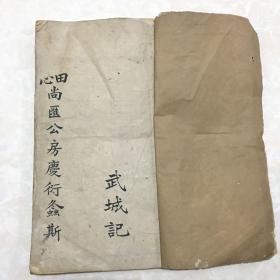 武城記
田心
尚匯公房慶衍螽斯